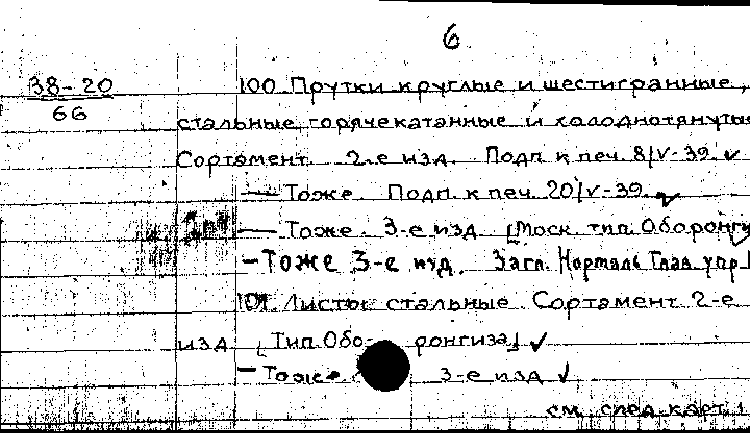 6
38-20
66
100 Прутки круглые и шестигранные,
стальные горячекатанные и холоднотянутые
Сортамент. 2-е изд. Подп. к печ. 8/V-39. ✓
— Тоже. Подп. к печ. 20/V-39. ✓
— Тоже. 3-е изд. [Моск. тип. Оборонги
— Тоже 3-е изд. Загл. Нормаль Глав. упр.
101. Листы стальные. Сортамент. 2-е
изд. [Тип. Обо- ронгиза] ✓
— Тоже. 3-е изд ✓
см. след. карт.